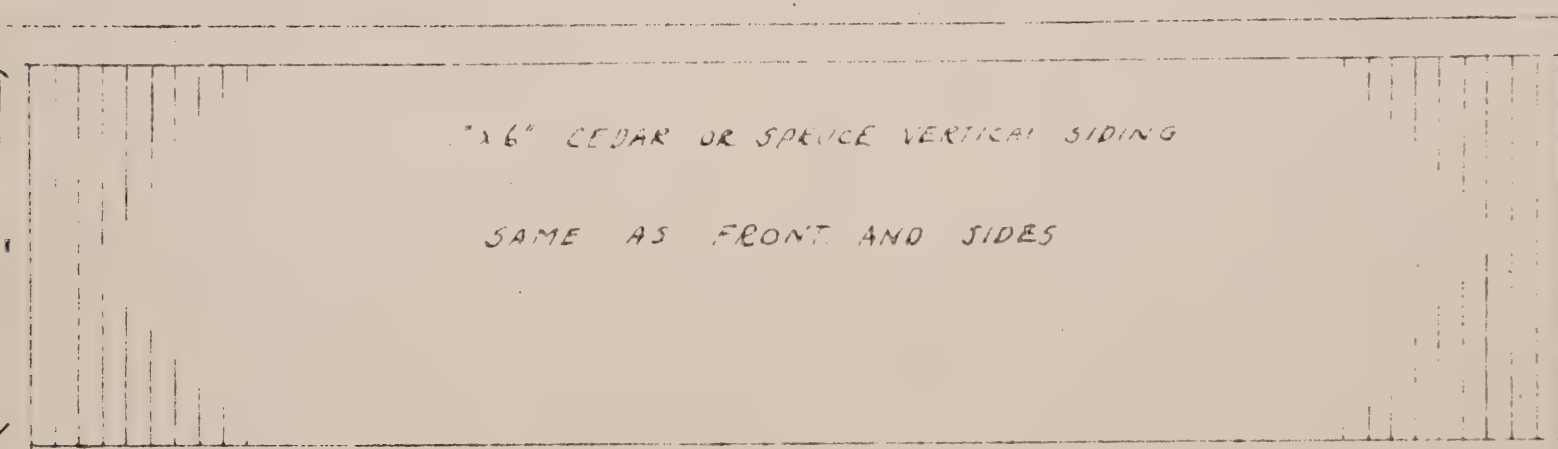 "x6" CEDAR OR SPRUCE VERTICAL SIDING
SAME AS FRONT AND SIDES